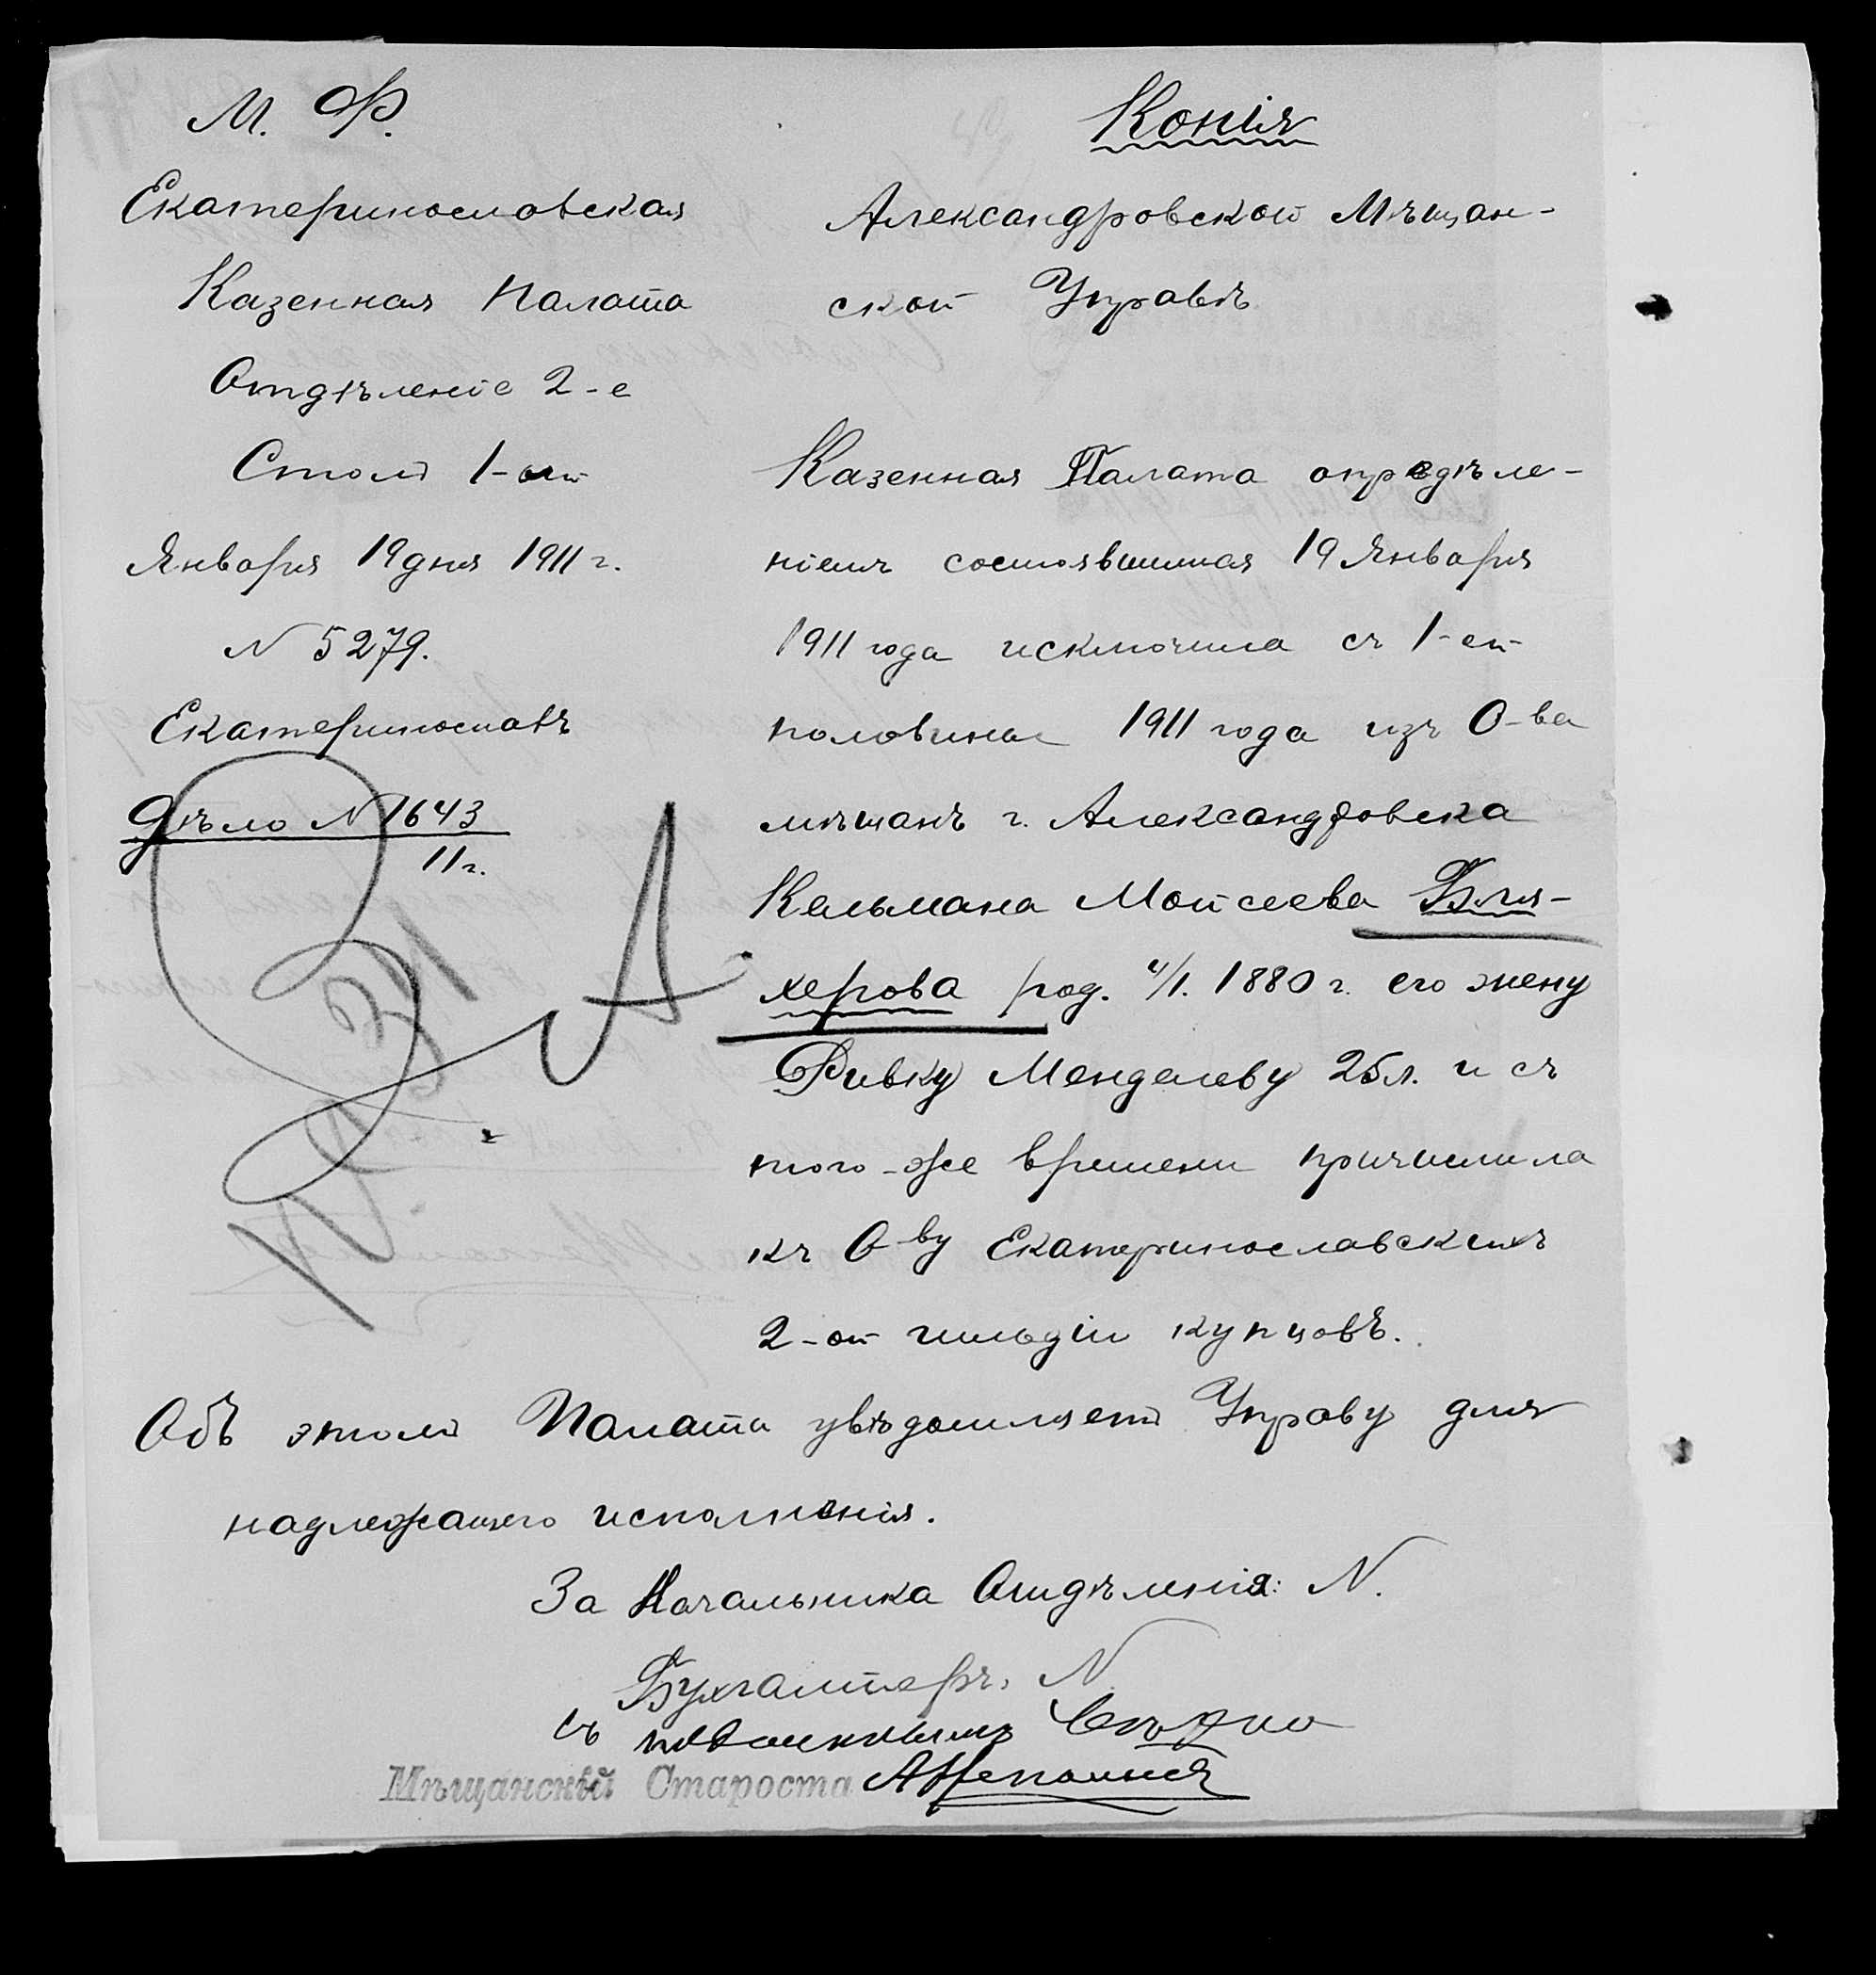 М. Ф.
Екатеринославская
Казенная Палата
Отдѣленіе 2-е
Столъ 1-ый
Января 19 дня 1911 г.
N 5279.
Екатеринославъ
Дѣло N 1643
11 г.
Копія
Александровской Мѣщан-
ской Управѣ
Казенная Палата опредѣле-
ніемъ состоявшимся 19 Января
1911 года исключила съ 1-ой
половины 1911 года изъ О-ва
мѣщанъ г. Александровска
Кельмана Мойсеева Бля-
херова род. 4/I. 1880 г. его жену
Ривку Менделеву 25 л. и съ
того-же времени причислила
къ О-ву Екатеринославскихъ
2-ой гильдіи купцовъ.
Объ этомъ Палата увѣдомляетъ Управу для
надлежащего исполненія.
За Начальника Отдѣленія: N.
Бухгалтеръ, N
съ подлиннымъ вѣрно
Мѣщанскій Староста